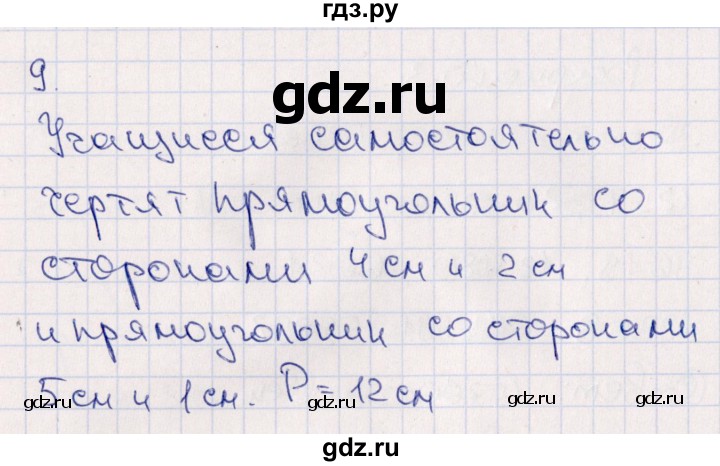 гдз.ру
9.
gdz.ru
Учащиеся самостоятельно
чертят прямоугольник со
сторонами 4 см и 2 см
и прямоугольник со сторонами
5 см и 1 см. P = 12 см
gdz.ru gdz.ru gdz.ru gdz.ru
gdz.ru